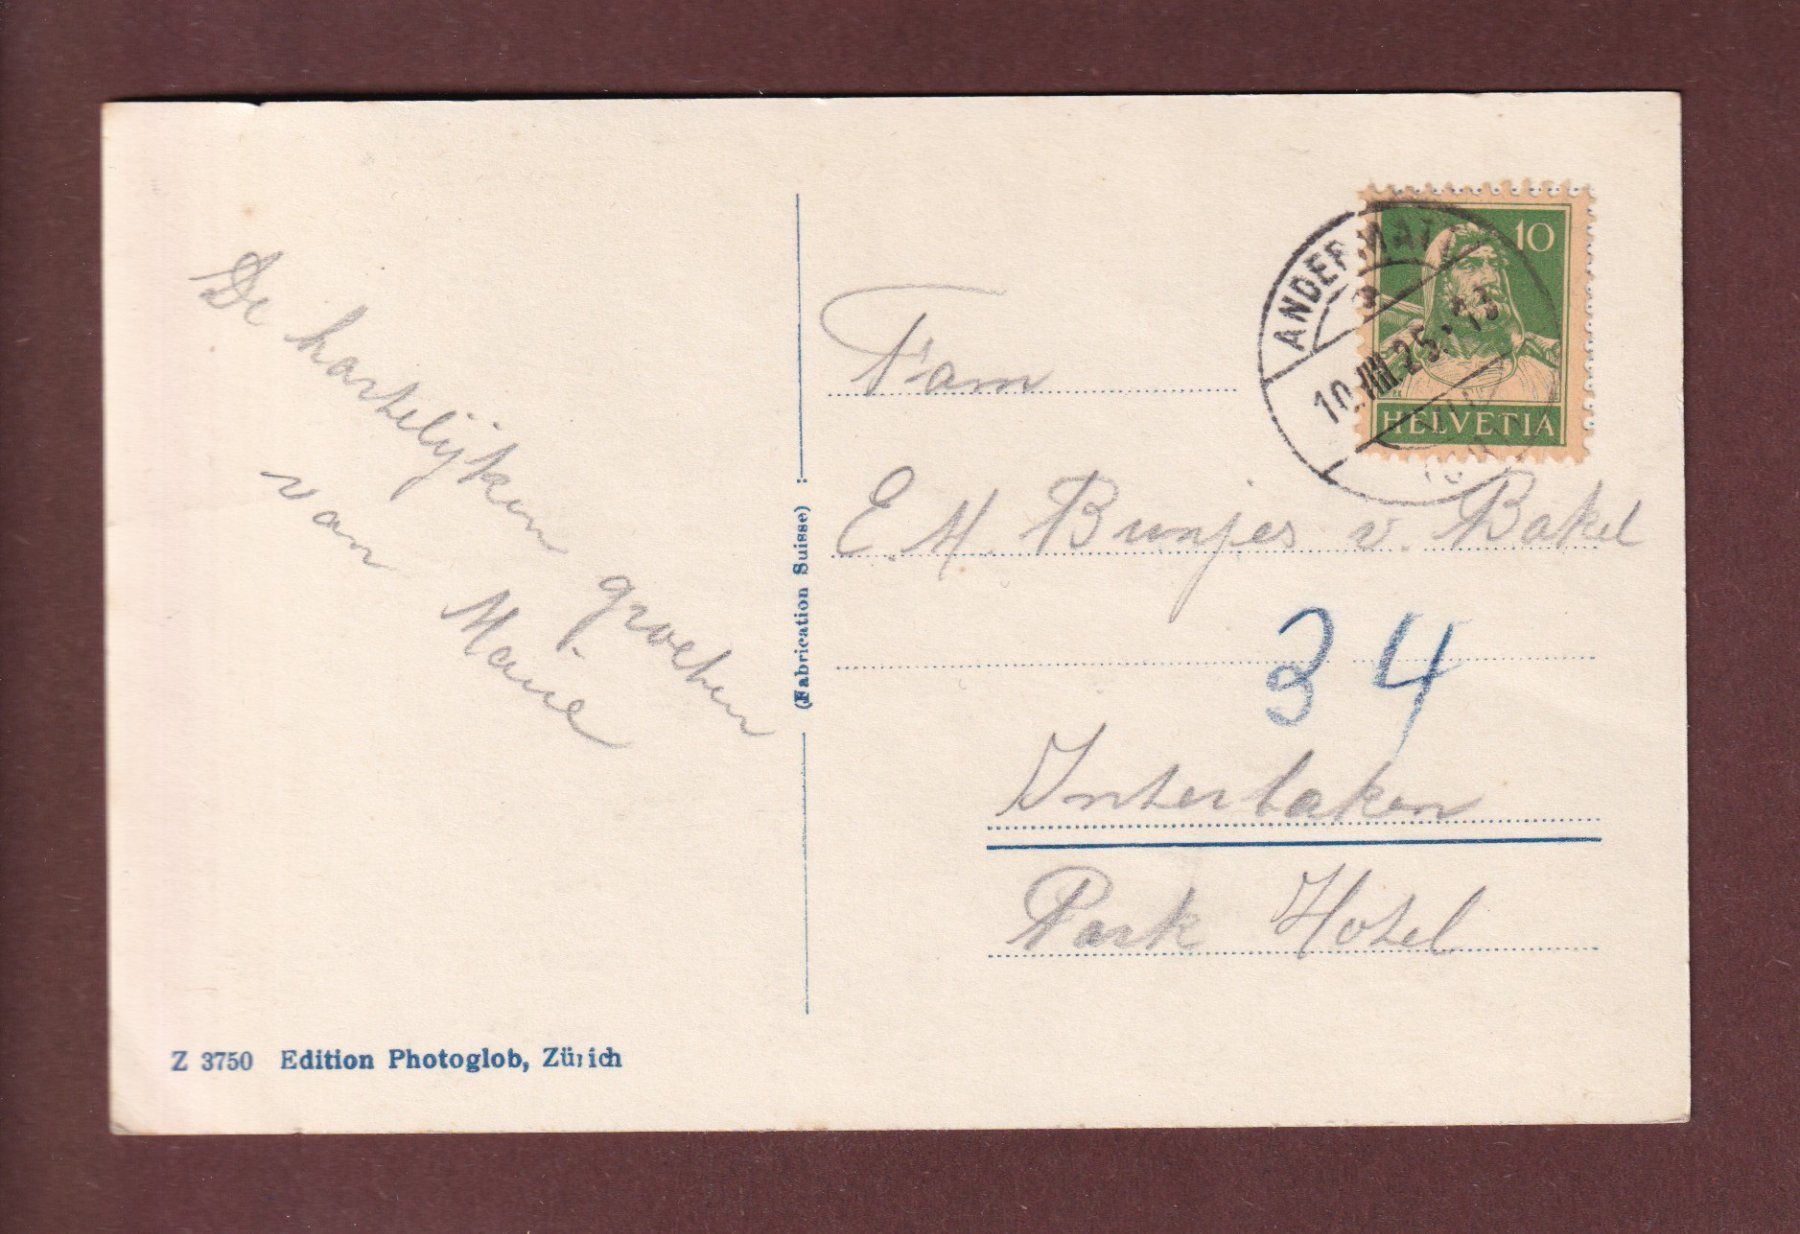 De hartelijken groeten
van Marie
Z 3750 Edition Photoglob, Zürich
(Fabrication Suisse)
ANDERMATT
10.VIII.25.-13
10
HELVETIA
Fam
E. M. Bunjes v. Bakel
34
Interlaken
Park Hotel